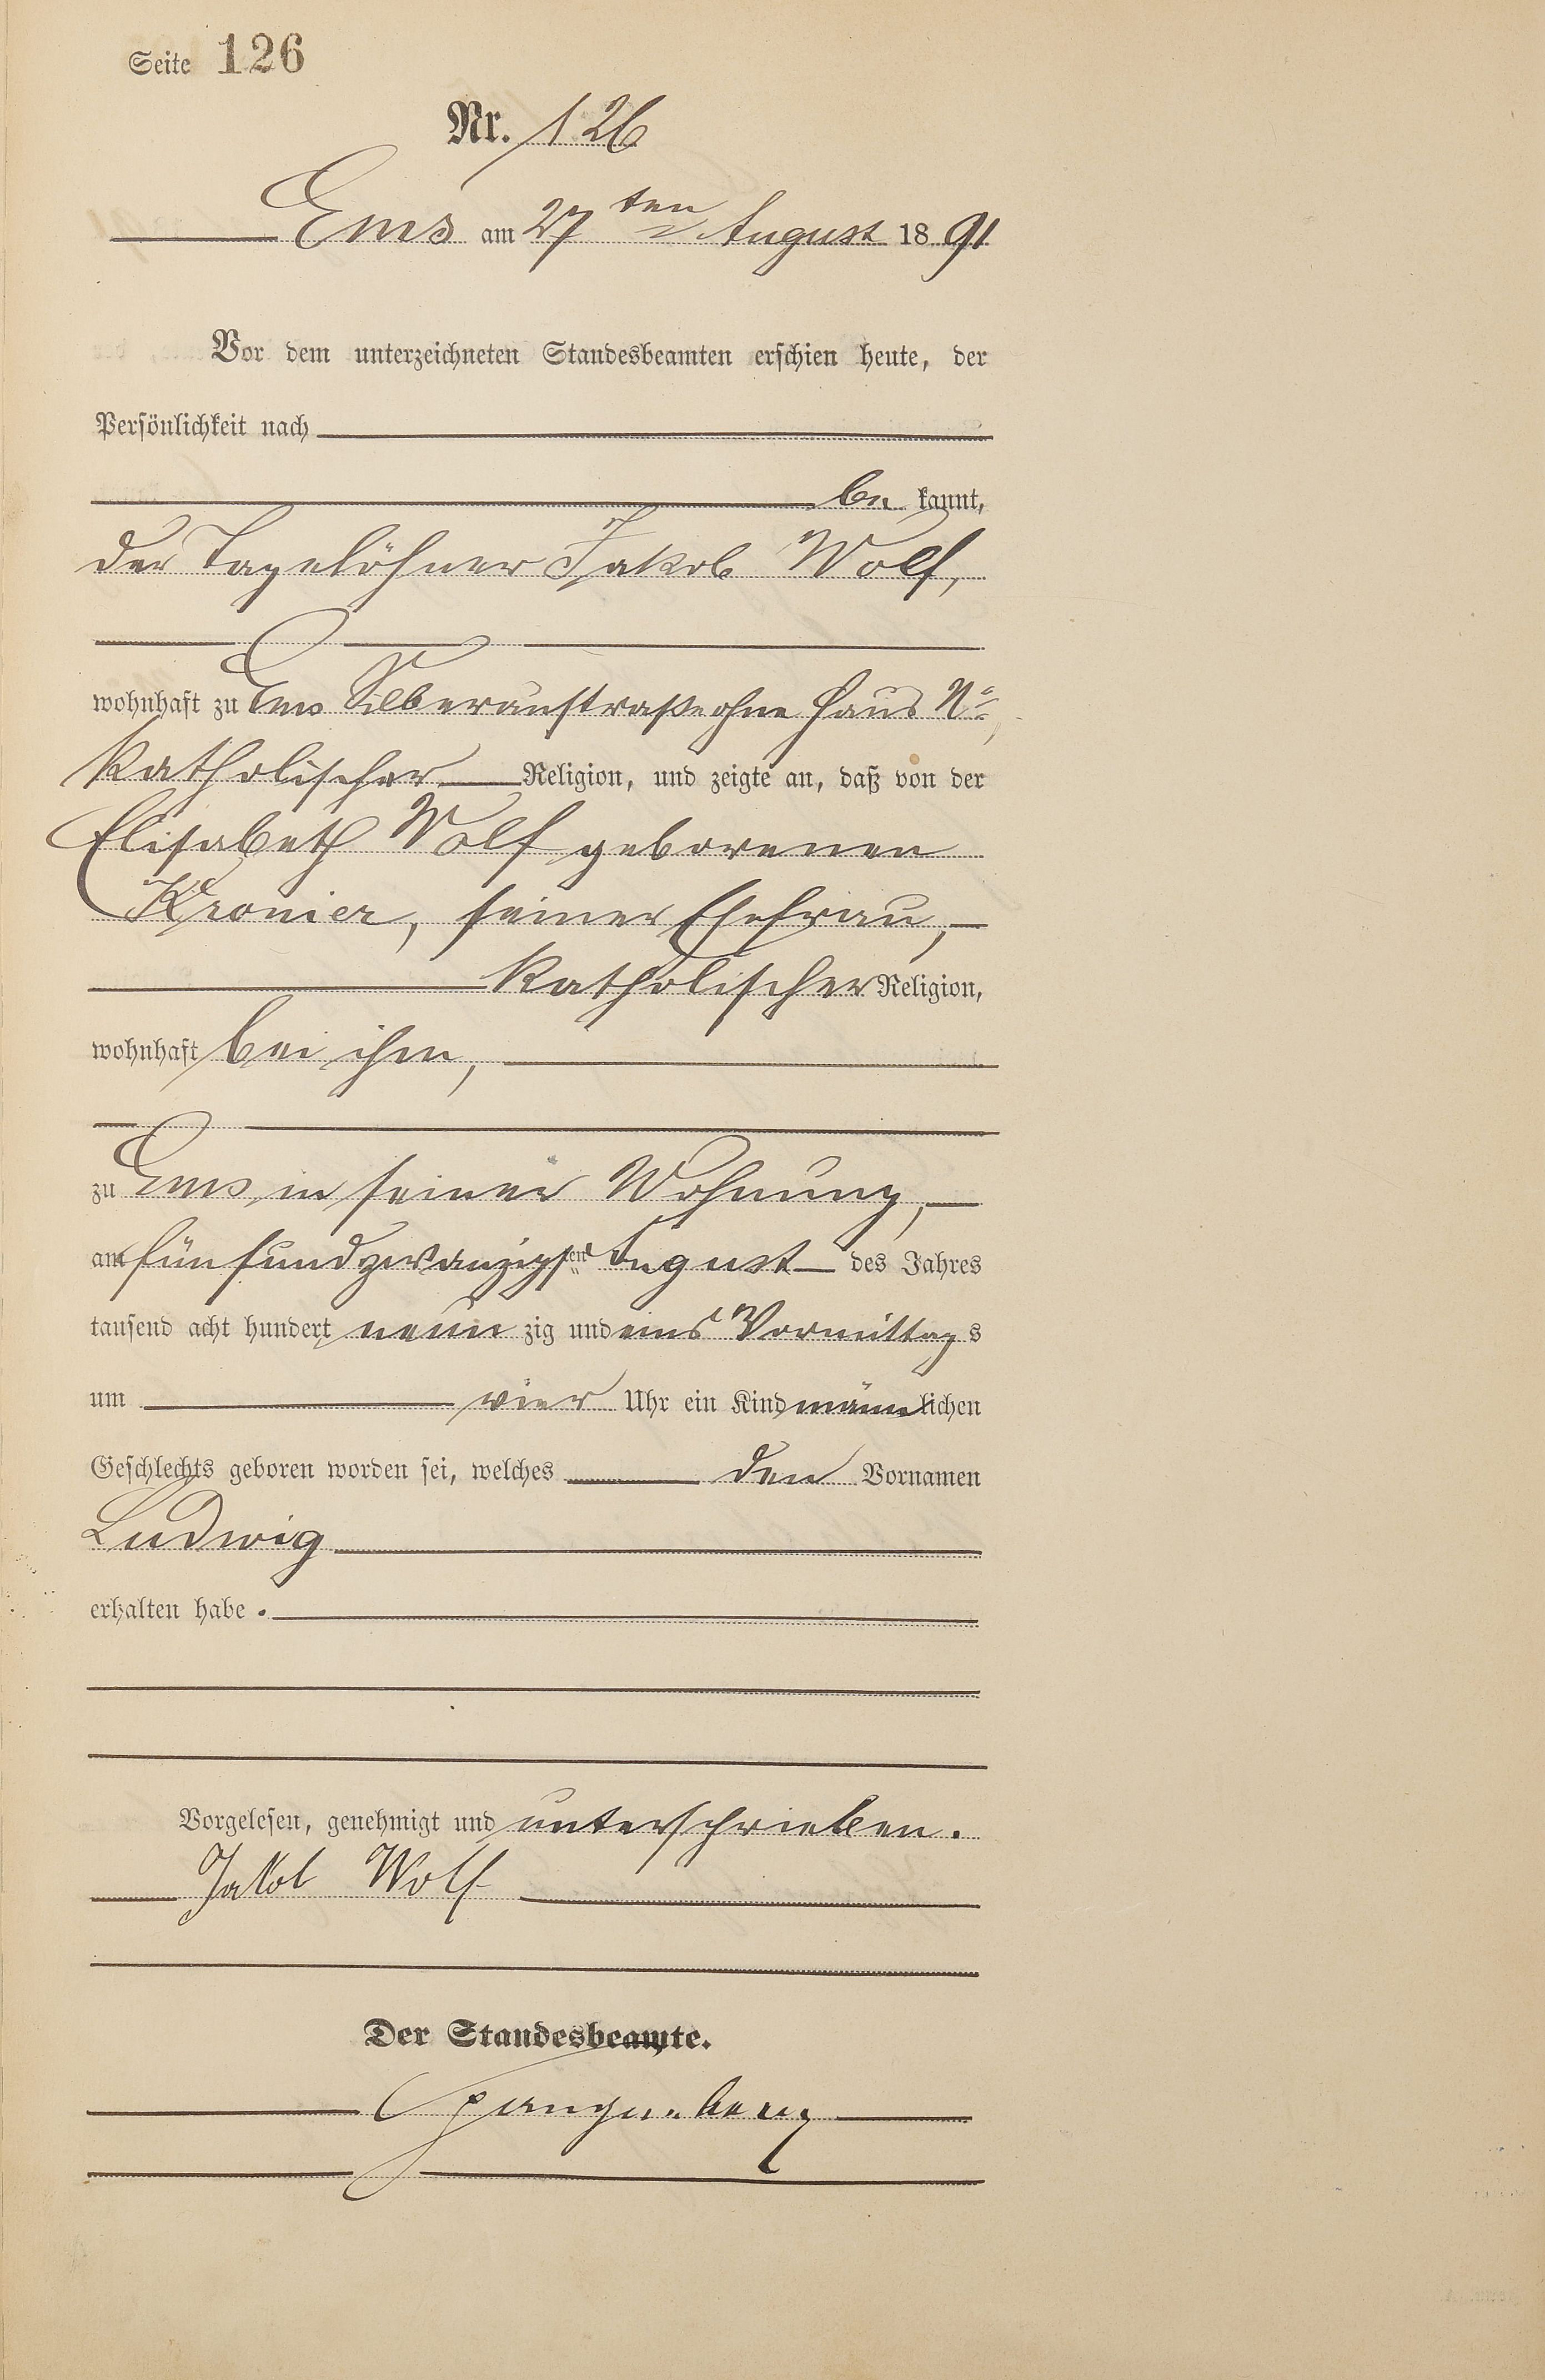 Seite 126
Nr. 126
Ems am 27ten August 1891
Vor dem unterzeichneten Standesbeamten erschien heute, der
Persönlichkeit nach
be kannt,
der Tagelöhner Jakob Wolf,
wohnhaft zu Ems Silberaustraße ohne Haus No,
katholischer Religion, und zeigte an, daß von der
Elisabeth Wolf geborenen
Kronier, seiner Ehefrau,
katholischer Religion,
wohnhaft bei ihm,
zu Ems in seiner Wohnung,
am fünfundzwanzigsten August des Jahres
tausend acht hundert neun zig und eins Vormittags
um vier Uhr ein Kind männlichen
Geschlechts geboren worden sei, welches den Vornamen
Ludwig
erhalten habe.
Vorgelesen, genehmigt und unterschrieben.
Jakob Wolf
Der Standesbeamte.
Spangenberg